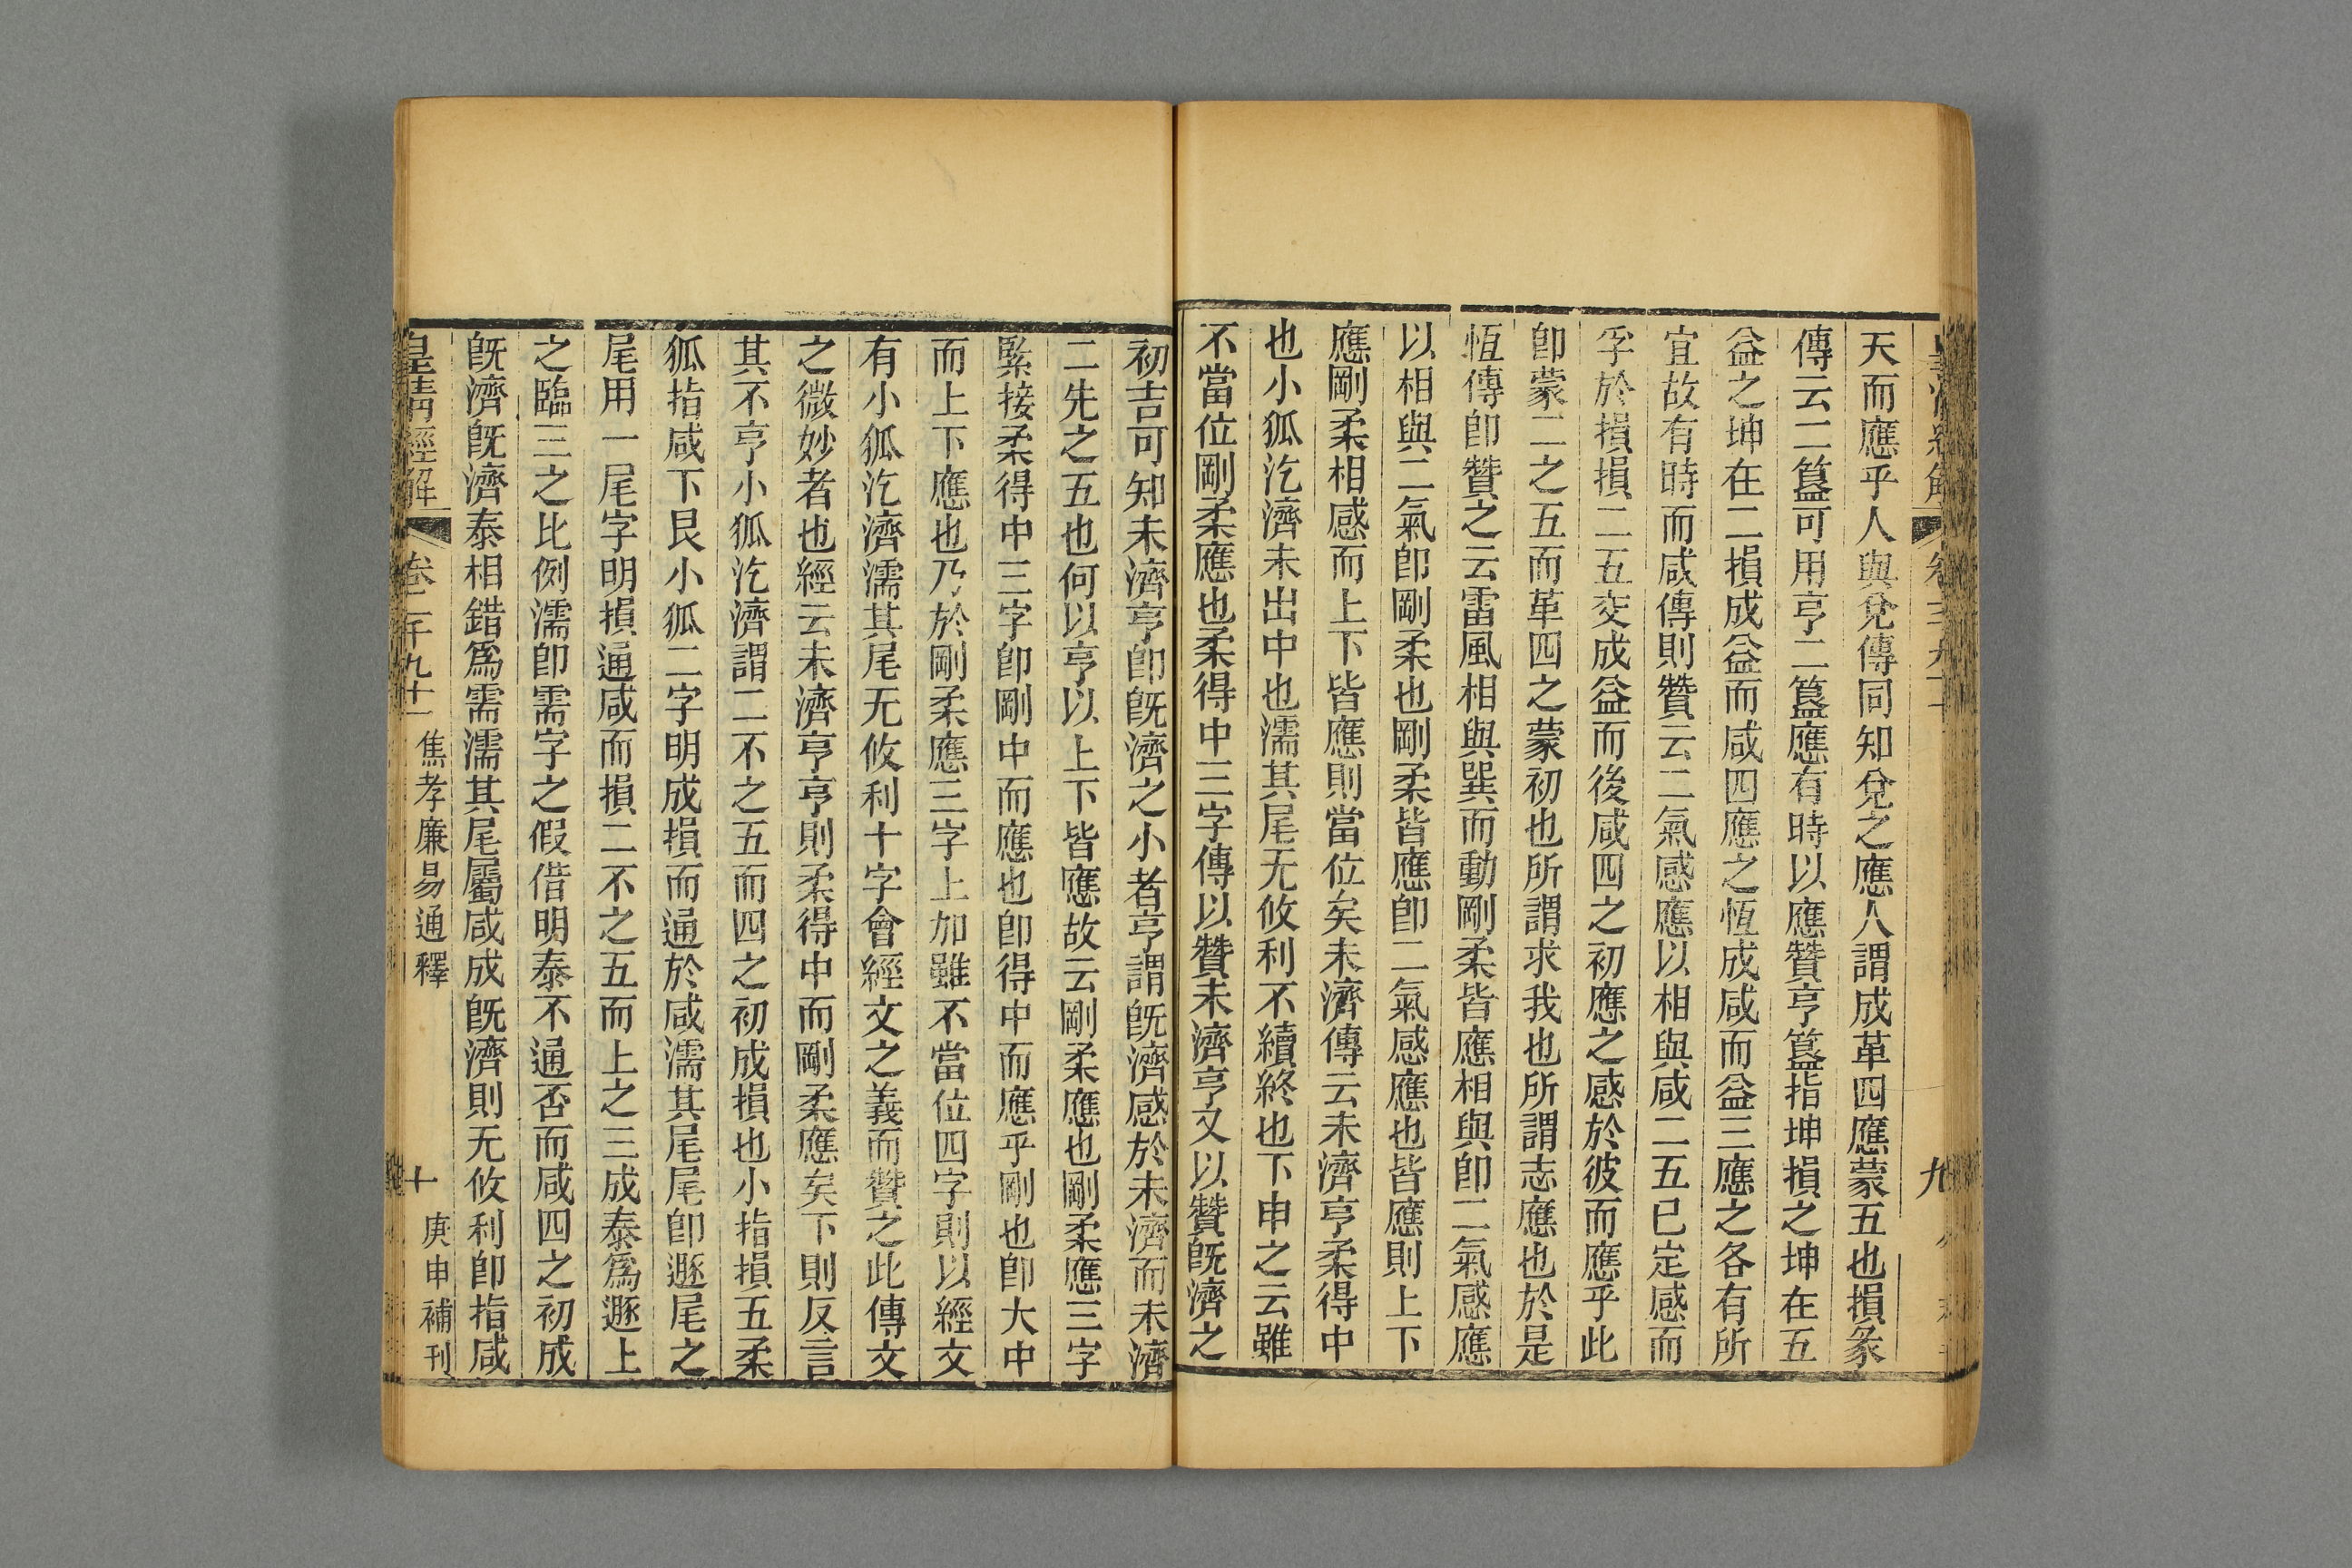 天而應乎人與兌傳同知兌之應人謂成革四應蒙五也損彖
傳云二簋可用亨二簋應有時以應贊亨簋指坤損之坤在五
益之坤在二損成益而咸四應之恆成咸而益三應之各有所
宜故有時而咸傳則贊云二氣感應以相與咸二五已定感而
孚於損損二五交成益而後咸四之初應之感於彼而應乎此
卽蒙二之五而革四之蒙初也所謂求我也所謂志應也於是
恆傳卽贊之云雷風相與巽而動剛柔皆應相與卽二氣感應
以相與二氣卽剛柔也剛柔皆應卽二氣感應也皆應則上下
應剛柔相感而上下皆應則當位矣未濟傳云未濟亨柔得中
也小狐汔濟未出中也濡其尾无攸利不續終也下申之云雖
不當位剛柔應也柔得中三字傳以贊未濟亨又以贊旣濟之
初吉可知未濟亨卽旣濟之小者亨謂旣濟感於未濟而未濟
二先之五也何以亨以上下皆應故云剛柔應也剛柔應三字
緊接柔得中三字卽剛中而應也卽得中而應乎剛也卽大中
而上下應也乃於剛柔應三字上加雖不當位四字則以經文
有小狐汔濟濡其尾无攸利十字會經文之義而贊之此傳文
之微妙者也經云未濟亨亨則柔得中而剛柔應矣下則反言
其不亨小狐汔濟謂二不之五而四之初成損也小指損五柔
狐指咸下艮小狐二字明成損而通於咸濡其尾尾卽遯尾之
尾用一尾字明損通咸而損二不之五而上之三成泰爲遯上
之臨三之比例濡卽需字之假借明泰不通否而咸四之初成
旣濟旣濟泰相錯爲需濡其尾屬咸成旣濟則无攸利卽指咸
皇淸經解 卷一千九十一 焦孝廉易通釋 十 庚申補刊